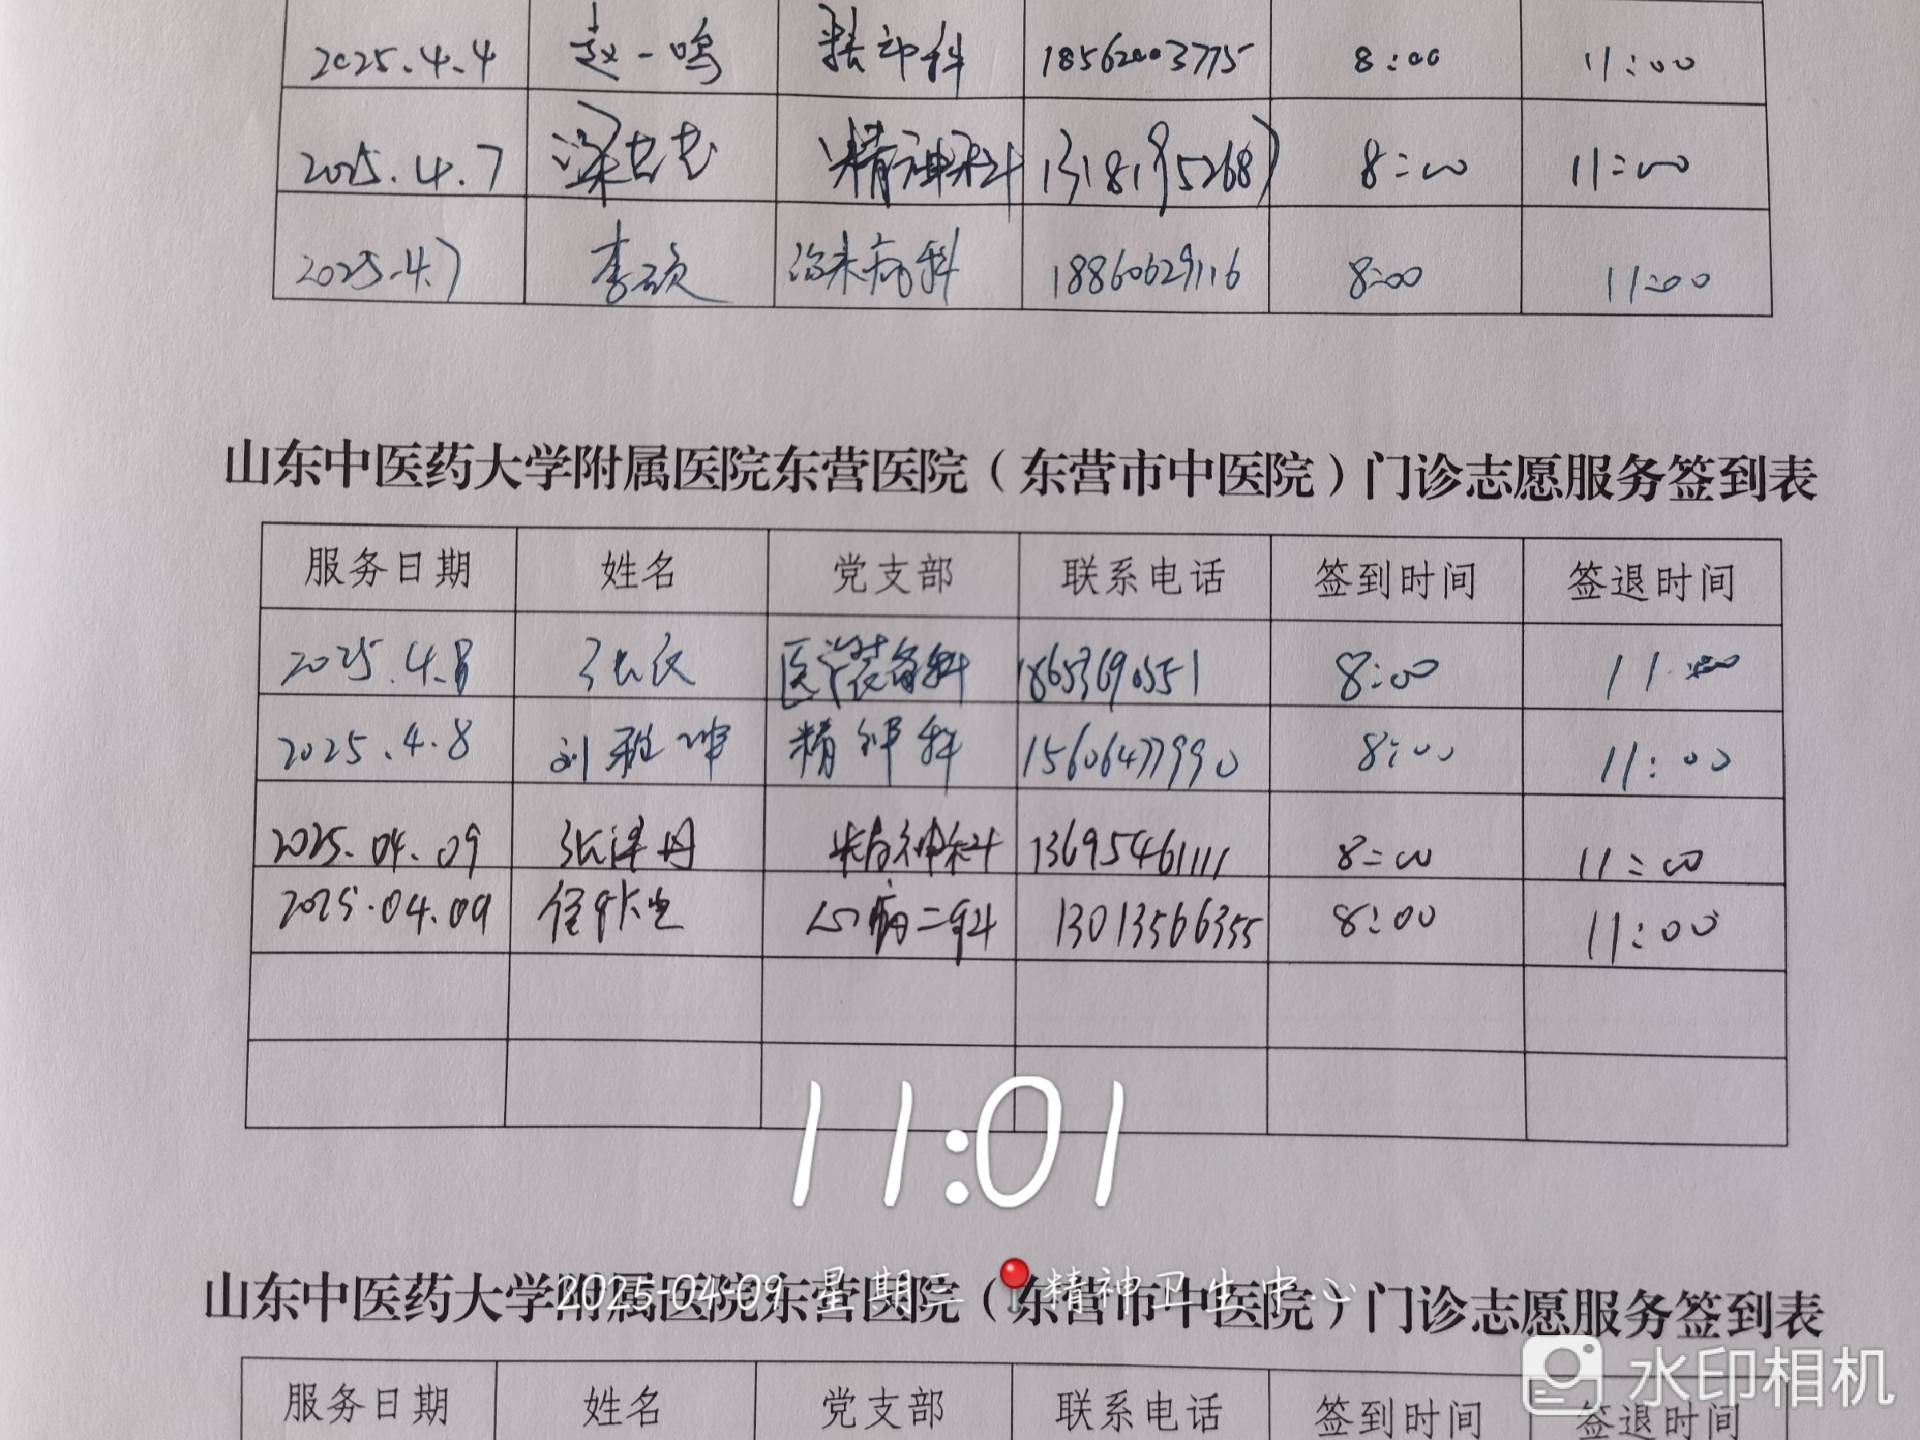 2025.4.4 赵一鸣 精神科 18562003775 8:00 11:00
2025.4.7 梁 精神科 8:00 11:00
2025.4.7 李硕 治未病科 18860629116 8:00 11:00
山东中医药大学附属医院东营医院（东营市中医院）门诊志愿服务签到表
服务日期 姓名 党支部 联系电话 签到时间 签退时间
2025.4.8 医学装备科 8:00 11:00
2025.4.8 刘雅坤 精神科 15606477990 8:00 11:00
2025.04.09 张泽丹 精神科 13695461111 8:00 11:00
2025.04.09 心病二科 13013566355 8:00 11:00
11:01
2025-04-09 星期三 精神卫生中心
山东中医药大学附属医院东营医院（东营市中医院）门诊志愿服务签到表
服务日期 姓名 党支部 联系电话 签到时间 签退时间
水印相机